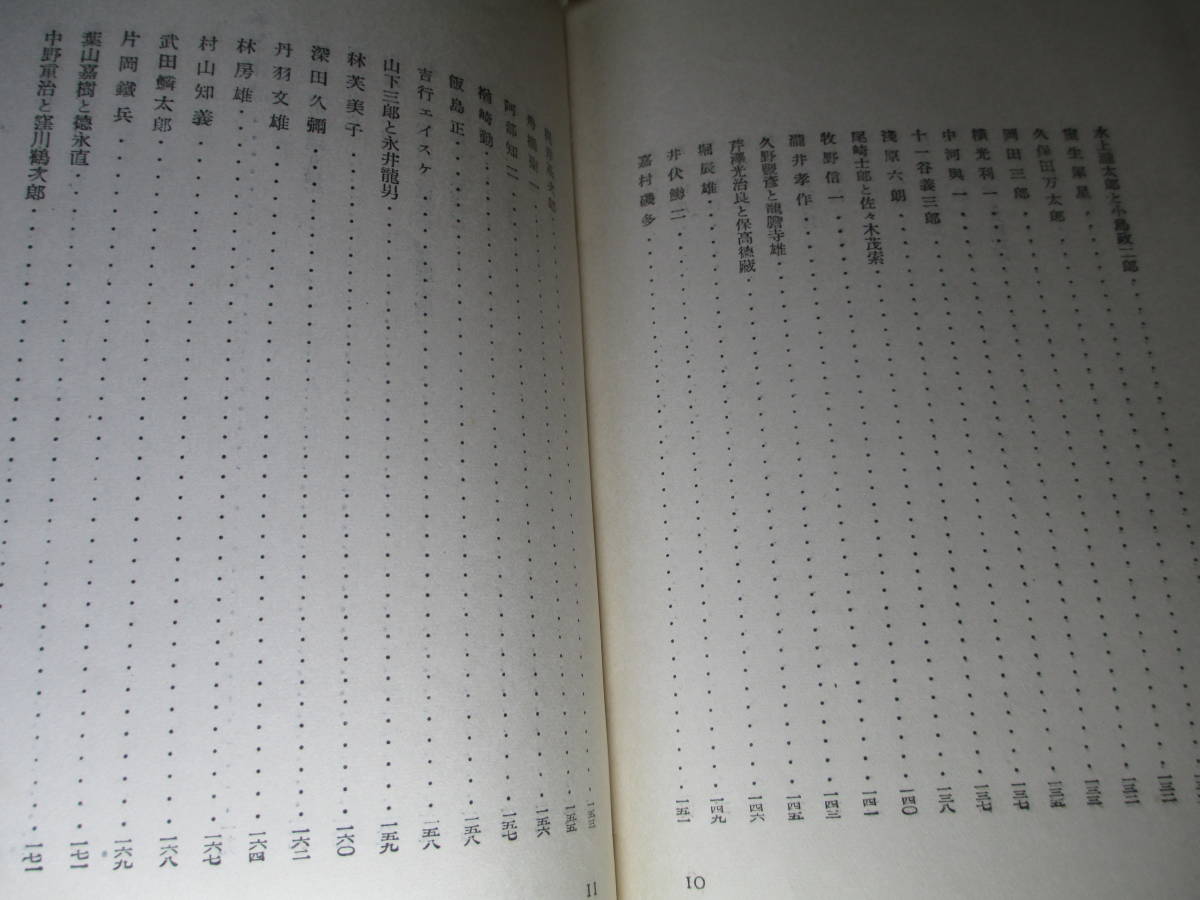 水上瀧太郎と小島政二郎
室生犀星
久保田万太郎 一三二
岡田三郎 一三二
横光利一 一三三
中河與一 一三五
十一谷義三郎 一三七
淺原六朗 一三七
尾崎士郎と佐々木茂索 一三八
牧野信一 一四〇
瀧井孝作 一四一
久野豐彥と龍膽寺雄 一四三
芹澤光治良と保高德藏 一四五
堀辰雄 一四六
井伏鱒二 一四九
嘉村礒多 一五一
10
一五三
舟橋聖一 一五五
阿部知二 一五六
楢崎勤 一五七
飯島正 一五八
吉行エイスケ 一五八
山下三郎と永井龍男 一五九
林芙美子 一六〇
深田久彌 一六二
丹羽文雄 一六四
林房雄 一六七
村山知義 一六八
武田麟太郎 一六九
片岡鐵兵 一七一
葉山嘉樹と德永直 一七一
中野重治と窪川鶴次郎
11